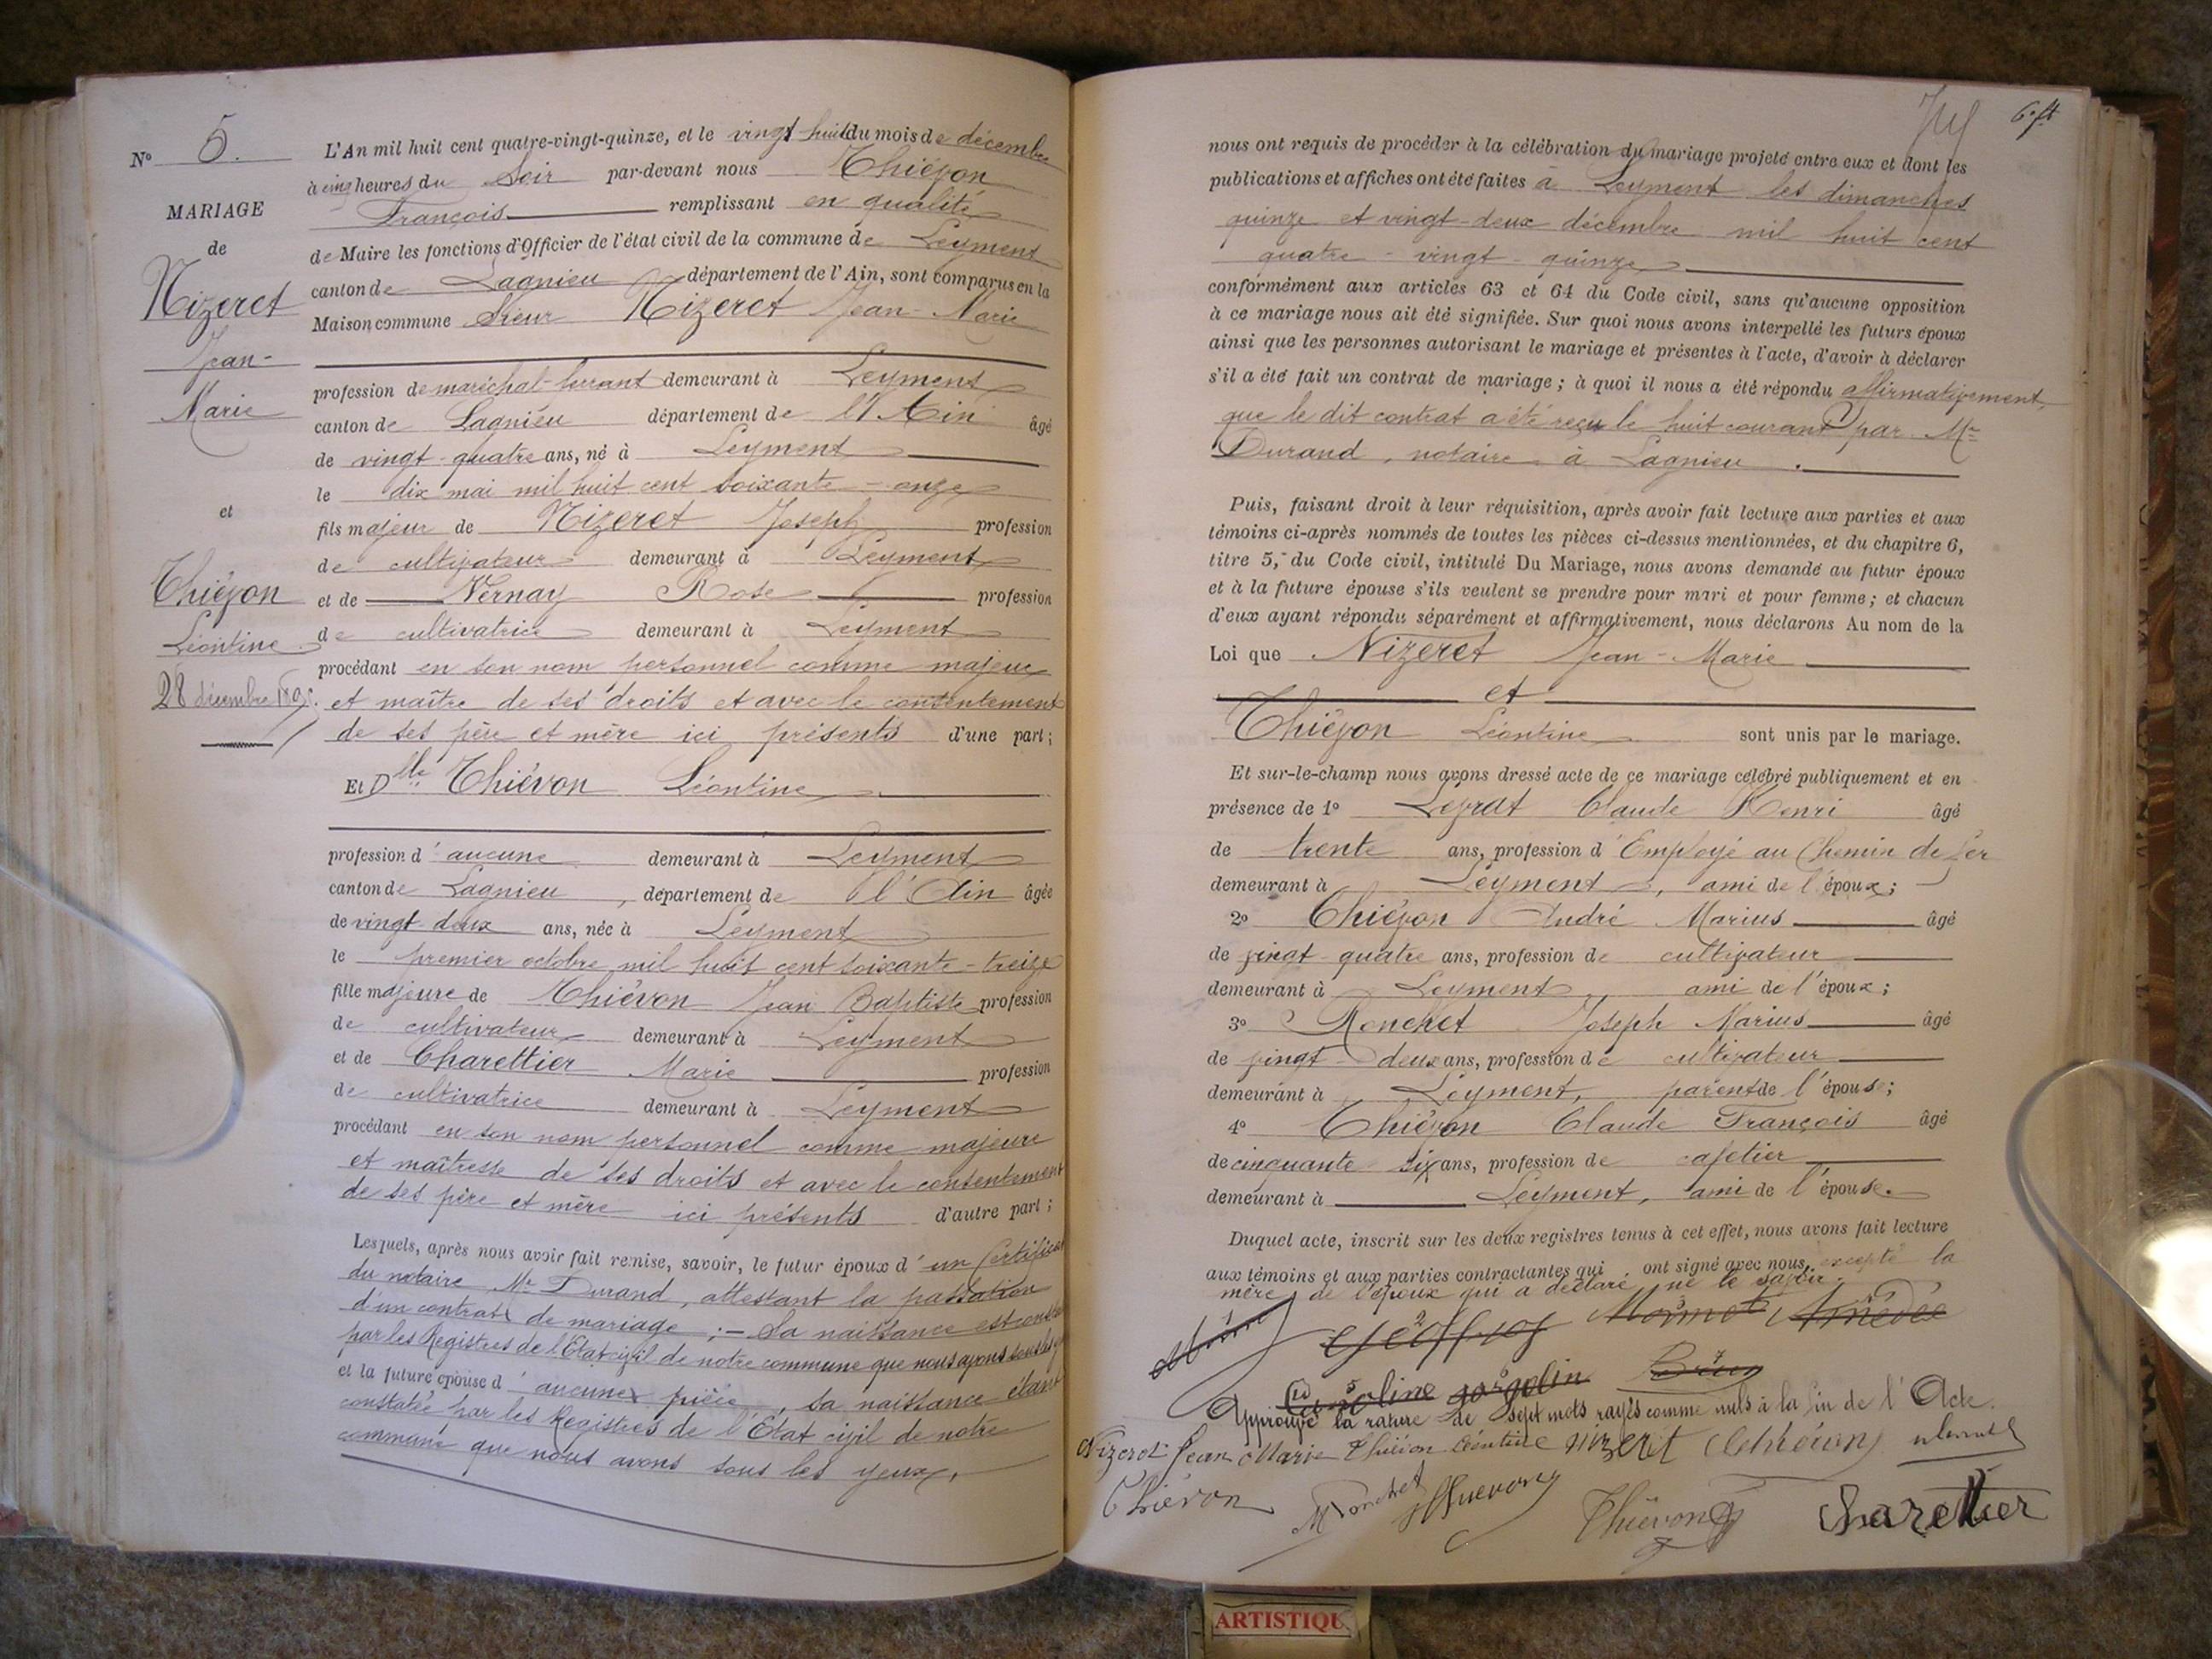 N° 5.
MARIAGE
de
Nizeret
Jean-
Marie
et
Thiévon
Léontine
28 décembre 1895.
L'An mil huit cent quatre-vingt-quinze, et le vingt-huit du mois de décembre
à cinq heures du Soir par-devant nous Thiévon
François remplissant en qualité
de Maire les fonctions d'Officier de l'état civil de la commune de Leyment
canton de Lagnieu département de l'Ain, sont comparus en la
Maison commune Sieur Nizeret Jean-Marie
profession de maréchal-ferrant demeurant à Leyment
canton de Lagnieu département de l'Ain âgé
de vingt-quatre ans, né à Leyment
le dix mai mil huit cent soixante-onze
fils majeur de Nizeret Joseph profession
de cultivateur demeurant à Leyment
et de Vernay Rose profession
de cultivatrice demeurant à Leyment
procédant en son nom personnel comme majeur
et maître de ses droits et avec le consentement
de ses père et mère ici présents d'une part;
Et Dlle Thiévon Léontine
profession d'aucune demeurant à Leyment
canton de Lagnieu, département de l'Ain âgée
de vingt-deux ans, née à Leyment
le premier octobre mil huit cent soixante-treize
fille majeure de Thiévon Jean Baptiste profession
de cultivateur demeurant à Leyment
et de Charettier Marie profession
de cultivatrice demeurant à Leyment
procédant en son nom personnel comme majeure
et maîtresse de ses droits et avec le consentement
de ses père et mère ici présents d'autre part;
Lesquels, après nous avoir fait remise, savoir, le futur époux d'un Certificat
du notaire, Me Durand, attestant la passation
d'un contrat de mariage; - Sa naissance est
par les Registres de l'Etat civil de notre commune que nous avons sous les
et la future épouse d'aucune pièce, sa naissance étant
constatée par les Registres de l'Etat civil de notre
commune que nous avons sous les yeux,
nous ont requis de procéder à la célébration du mariage projeté entre eux et dont les
publications et affiches ont été faites à Leyment les dimanches
quinze et vingt-deux décembre mil huit cent
quatre-vingt-quinze
conformément aux articles 63 et 64 du Code civil, sans qu'aucune opposition
à ce mariage nous ait été signifiée. Sur quoi nous avons interpellé les futurs époux
ainsi que les personnes autorisant le mariage et présentes à l'acte, d'avoir à déclarer
s'il a été fait un contrat de mariage; à quoi il nous a été répondu affirmativement,
que le dit contrat a été reçu le huit courant par Me
Durand, notaire à Lagnieu.
Puis, faisant droit à leur réquisition, après avoir fait lecture aux parties et aux
témoins ci-après nommés de toutes les pièces ci-dessus mentionnées, et du chapitre 6,
titre 5, du Code civil, intitulé Du Mariage, nous avons demandé au futur époux
et à la future épouse s'ils veulent se prendre pour mari et pour femme; et chacun
d'eux ayant répondu séparément et affirmativement, nous déclarons Au nom de la
Loi que Nizeret Jean-Marie
et
Thiévon Léontine sont unis par le mariage.
Et sur-le-champ nous avons dressé acte de ce mariage célébré publiquement et en
présence de 1° Leyrat Claude Henri âgé
de trente ans, profession d'Employé au Chemin de fer
demeurant à Leyment, ami de l'époux;
2° Thiévon André Marius âgé
de vingt-quatre ans, profession de cultivateur
demeurant à Leyment, ami de l'époux;
3° Ronchet Joseph Marius âgé
de vingt-deux ans, profession de cultivateur
demeurant à Leyment, parent de l'épouse;
4° Thiévon Claude François âgé
de cinquante six ans, profession de cafetier
demeurant à Leyment, ami de l'épouse.
Duquel acte, inscrit sur les deux registres tenus à cet effet, nous avons fait lecture
aux témoins et aux parties contractantes qui ont signé avec nous, excepté la
mère de l'époux qui a déclaré ne le savoir.
Approuvé la rature de sept mots rayés comme nuls à la fin de l'Acte.
Nizeret Jean Marie Thiévon Léontine Nizeret Thiévon
Thiévon Ronchet Thiévon Thiévon Charettier
ARTISTIQU